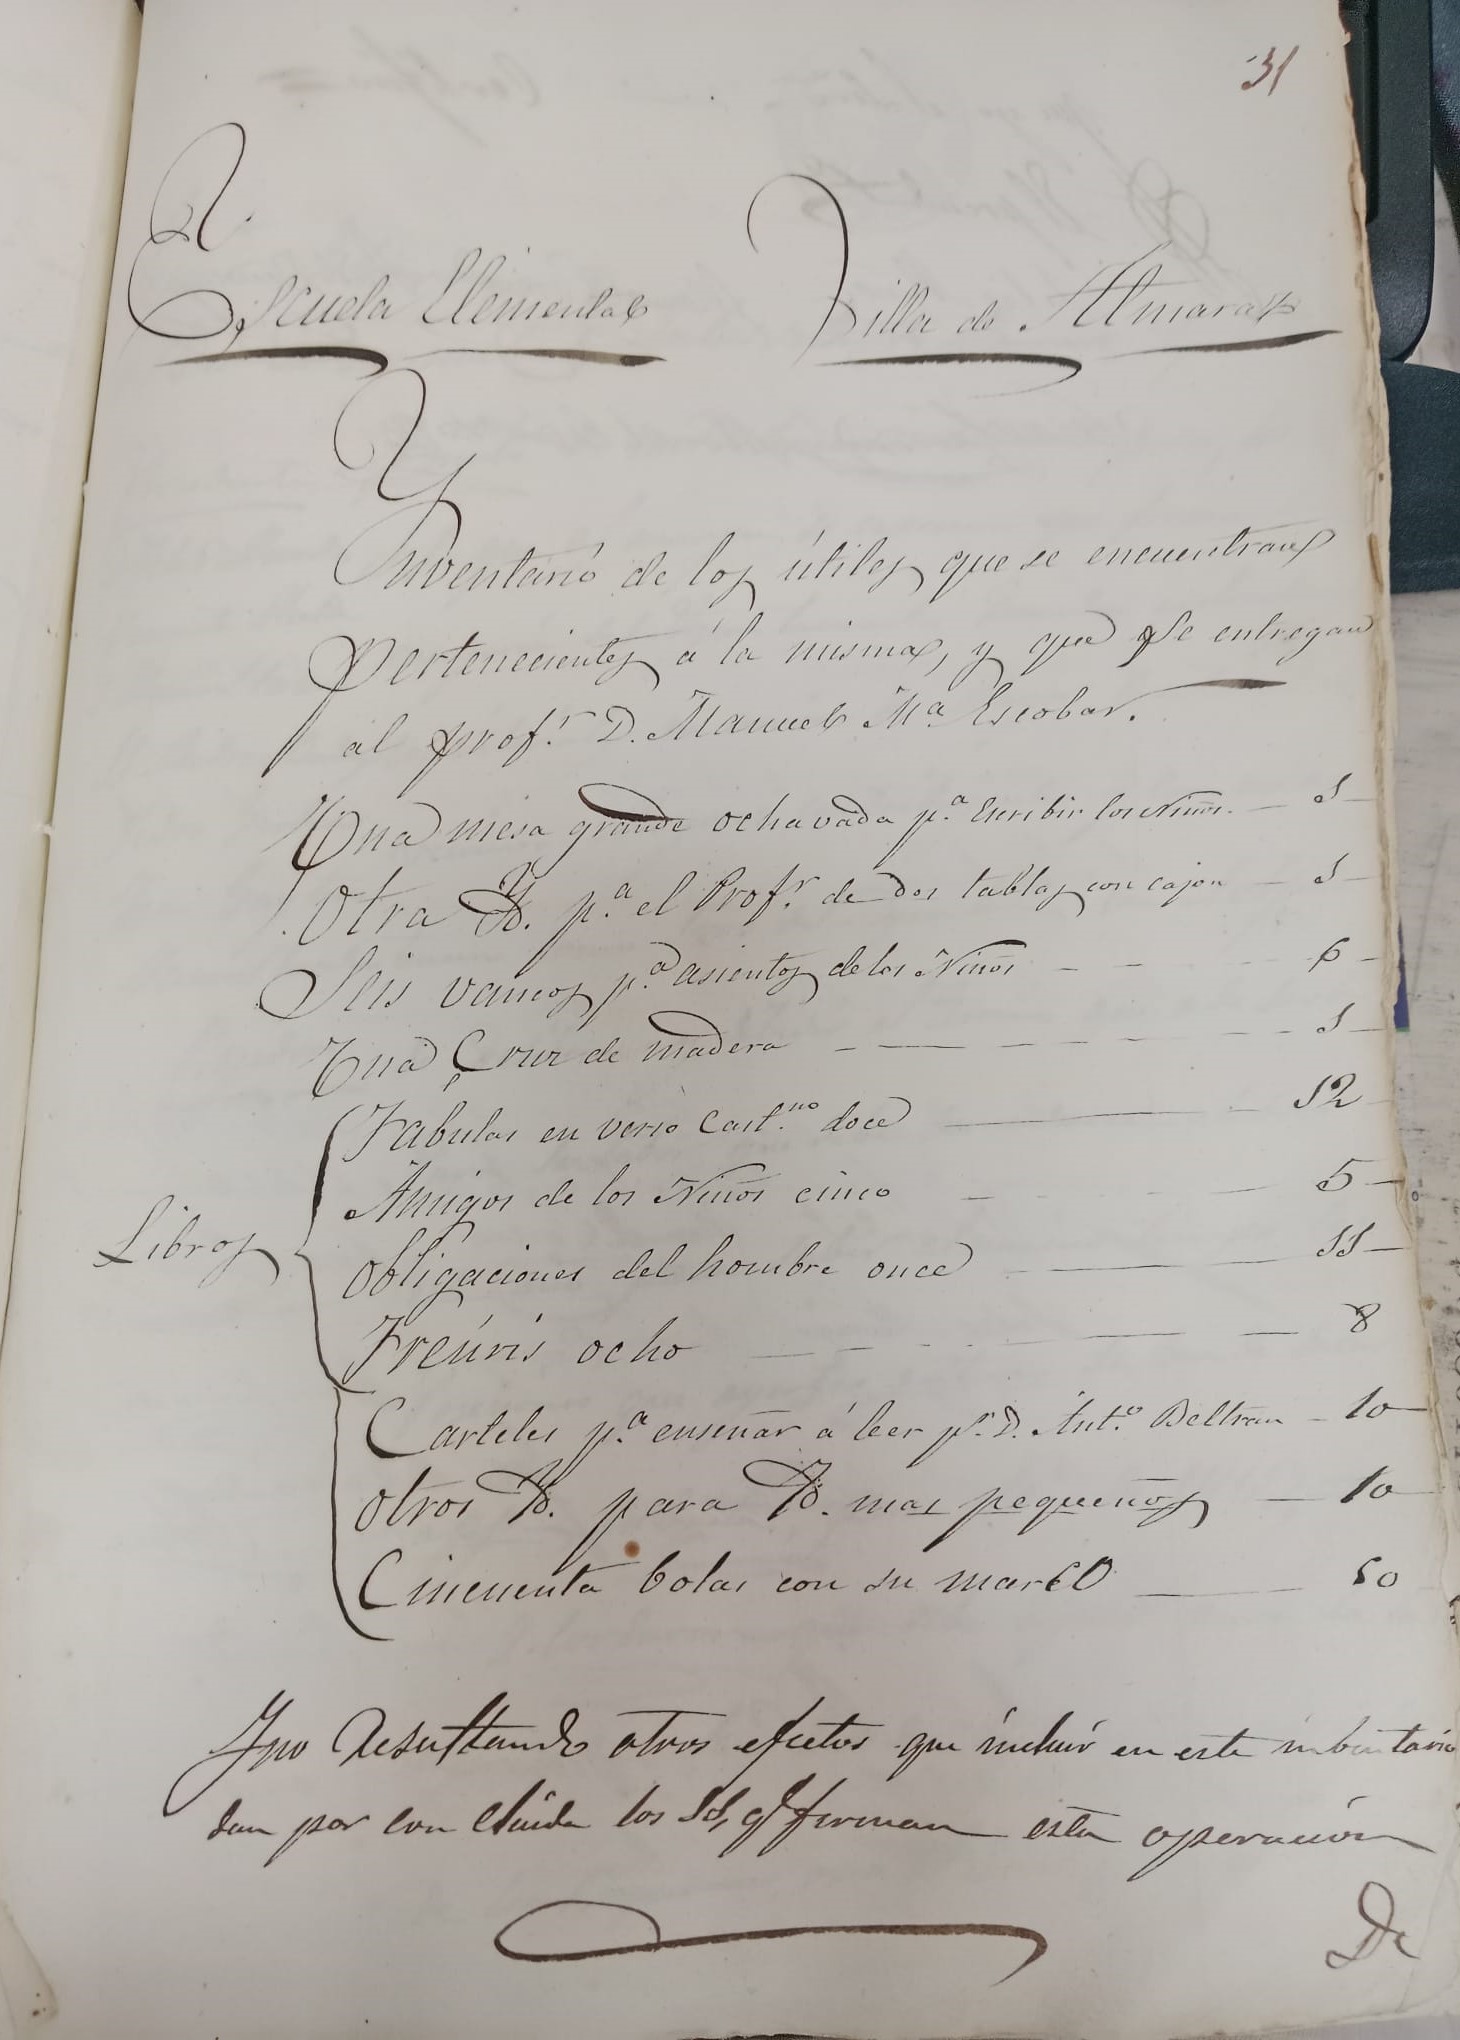 31
Escuela Elemental Villa de Almaraz
Ynventario de los útiles que se encuentran
pertenecientes á la misma, y que se entregan
al prof.r D. Manuel M.a Escobar.
Una mesa grande ochavada p.a Escribir los Niños. — 1
Otra Yd. p.a el Prof.r de dos tablas con cajon — 1
Seis vancos p.a asientos de los Niños — 6
Una Cruz de madera — 1
Fabulas en verso Cast.no doce — 12
Amigos de los Niños cinco — 5
Libros
Obligaciones del hombre once — 11
Freúris ocho — 8
Carteles p.a enseñar á leer p.r D. Ant.o Beltran — 10
Otros Yd. para Yd. mas pequeños — 10
Cincuenta bolas con su marco — 50
Y no Resultando otros efectos que incluir en este inbentario
dan por concluida los SS. q.e firman esta operación
De